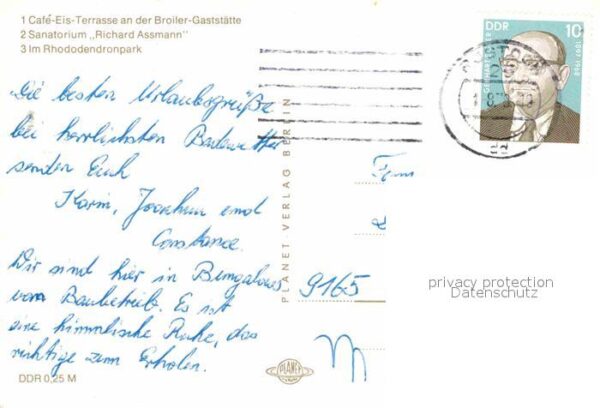 1 Café-Eis-Terrasse an der Broiler-Gaststätte
2 Sanatorium „Richard Assmann"
3 Im Rhododendronpark
DDR 10
Die besten Urlaubsgrüße
bei herrlichsten Badewetter
senden Euch
Karin, Joachim und
Constance.
Wir sind hier in Bungalows
vom Baubetrieb. Es ist
eine himmlische Ruhe, das
richtige zum Erholen.
DDR 0,25 M
PLANET VERLAG BERLIN
PLANET
Fam
9165
privacy protection
Datenschutz